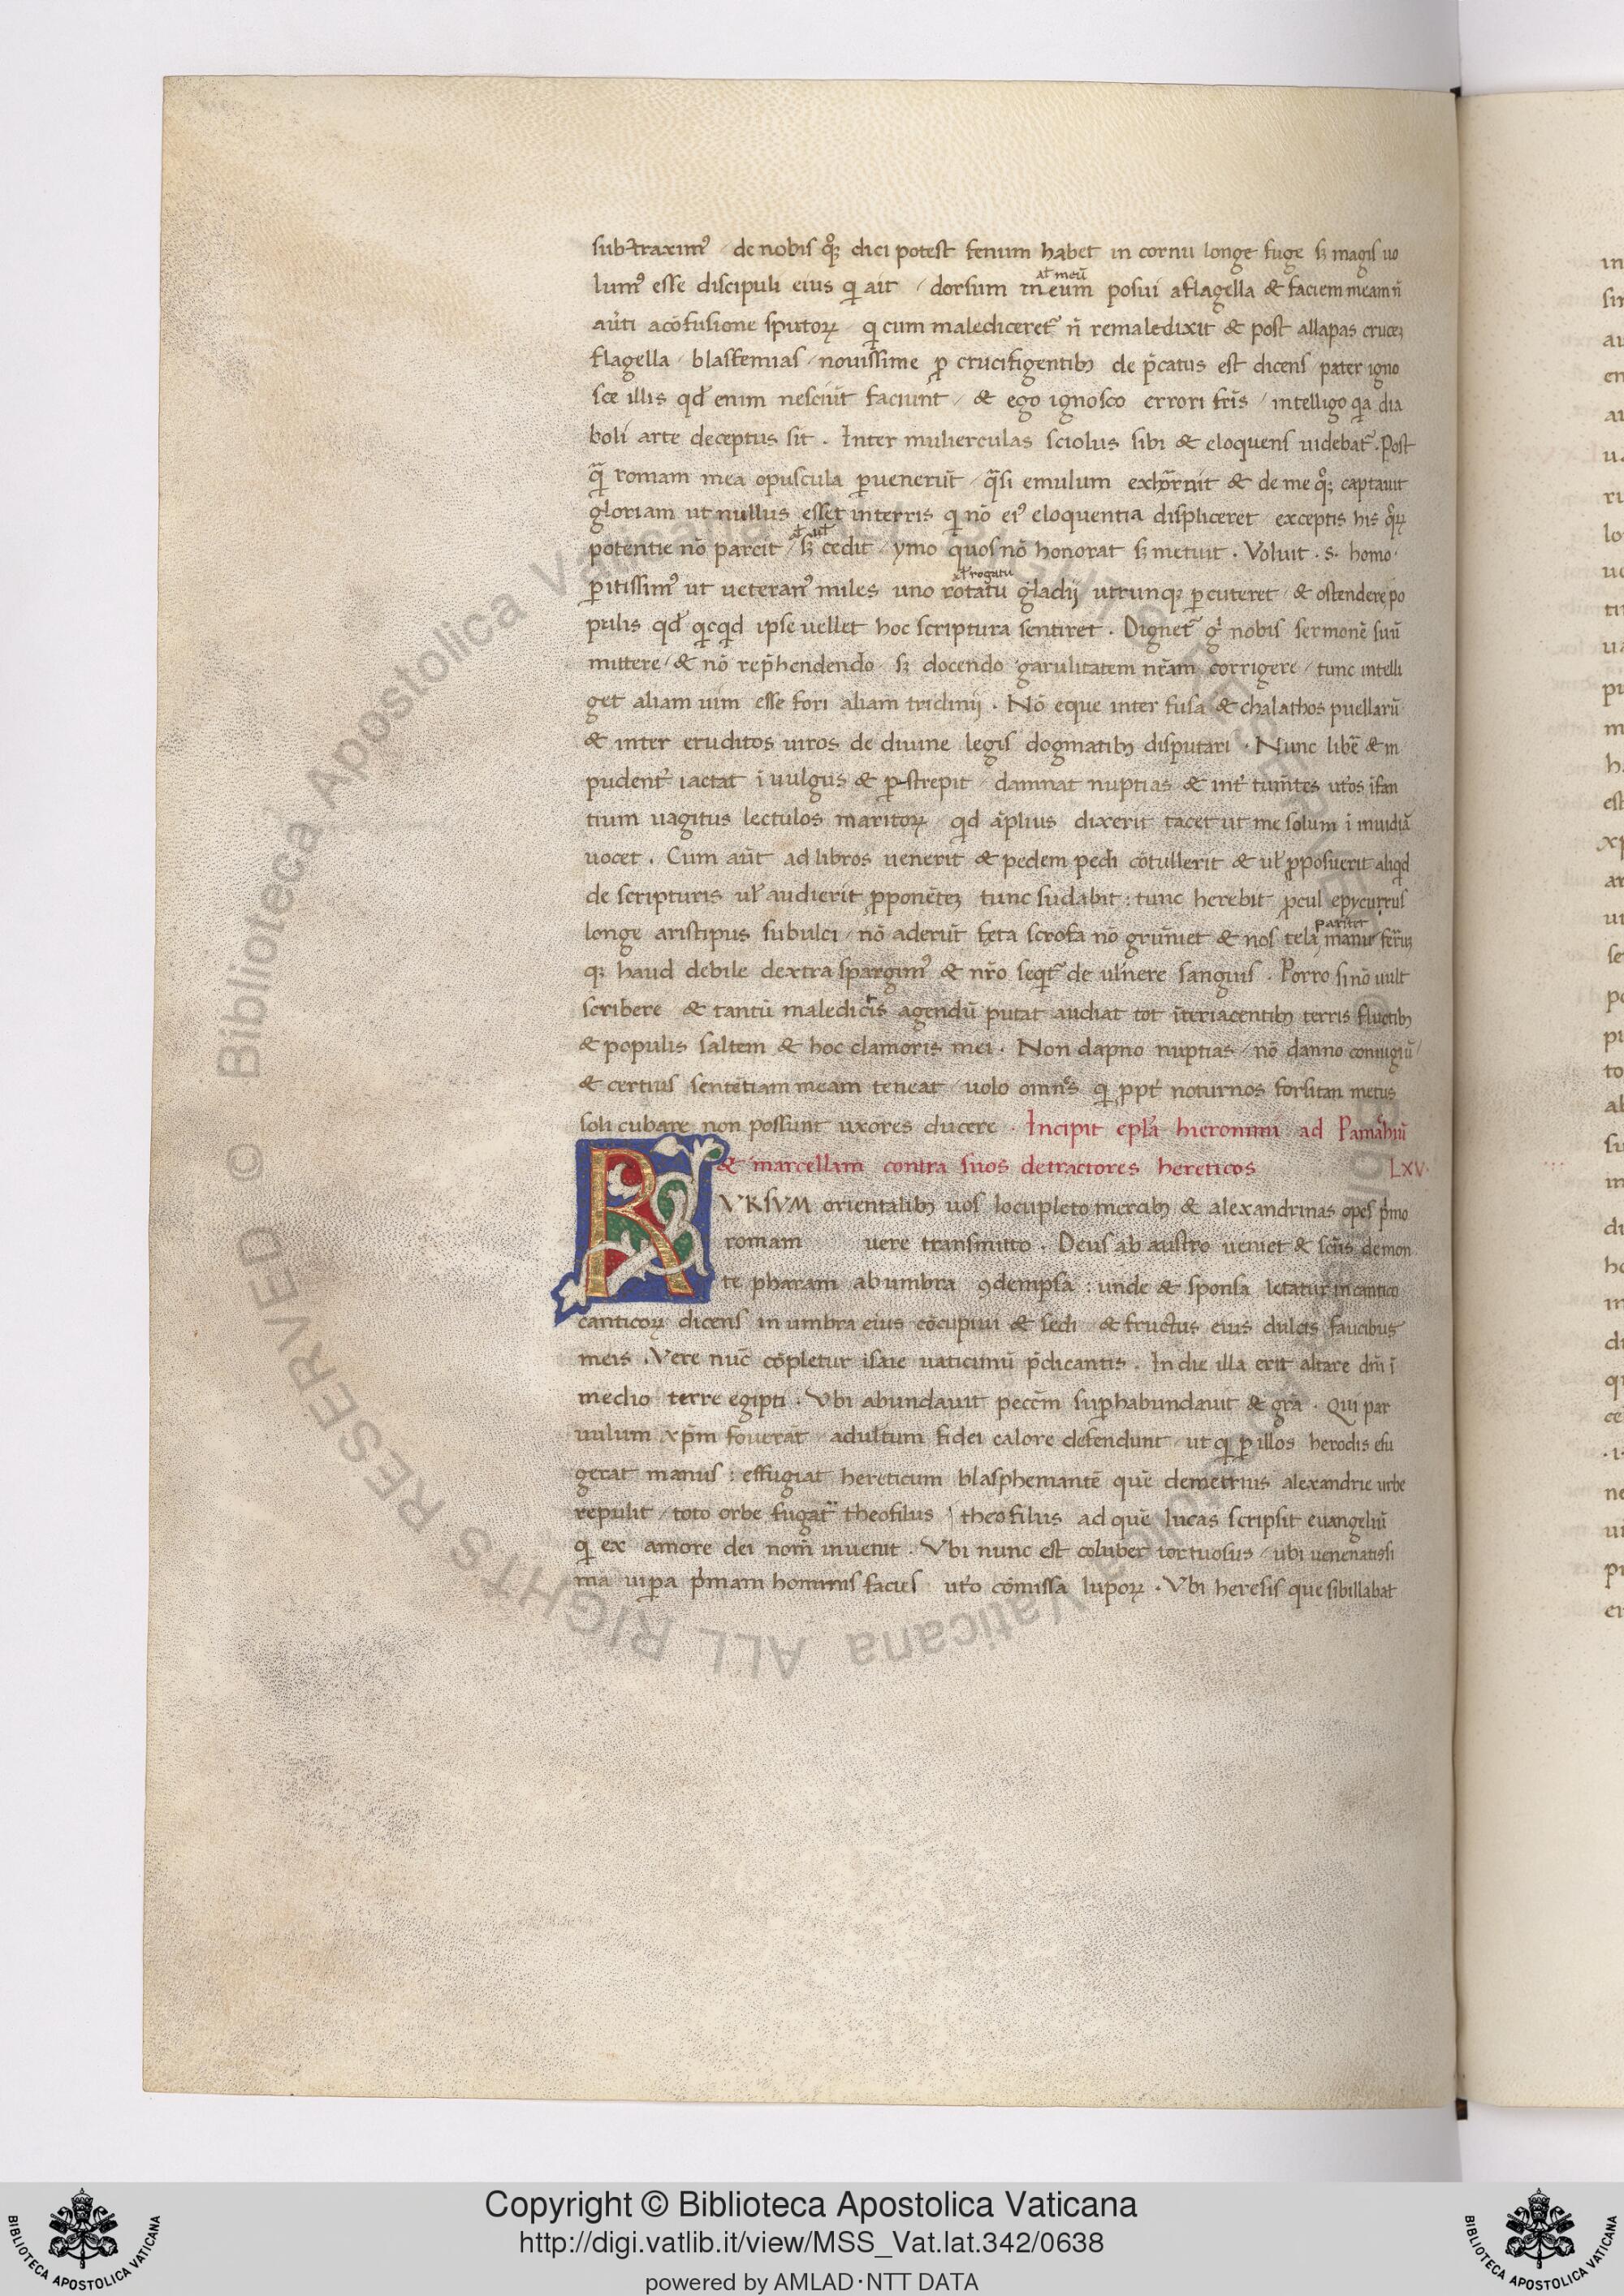 subtraximꝰ / de nobis qͦꝫ dici potest fenum habet in cornu longe fuge sꝫ magis uo
lumꝰ esse discipuli eius qͥ ait / dorsum meum posui aflagella & faciem meam n̄
al̄ meū
au̓ti acōfusione sputoꝝ / qͥ cum malediceret᷑ n̄ remaledixit & post allapas cruceꝫ
flagella / blasfemias / nouissime ꝓ crucifigentibꝫ de p̄catus est dicens / pater igno
sce illis qd̓ enim nesciūt faciunt / & ego ignosco errori fr̄is / intelligo qͣ dia
boli arte deceptus sit . Inter mulierculas sciolus sibi & eloquens uidebat᷑ . Post
qͣ̄ romam mea opuscula ꝑuenerūt / qͣsi emulum exhorruit & de me qͦꝫ captauit
gloriam ut nullus esset interris qͥ nō eiꝰ eloquentia displiceret / exceptis his qͦꝝ
potentie nō parcit / sꝫ cedit / ymo quos nō honorat sꝫ metuit . Voluit .s. homo
ꝑitissimꝰ ut ueteranꝰ miles uno rotatu gladij utrunqꝫ ꝑcuteret / & ostendere po
al̄ rogatu
pulis qd̓ qͥcqͥd ipse uellet hoc scriptura sentiret . Dignet᷑ gͦ nobis sermonē suū
mittere / & nō rep̄hendendo sꝫ docendo garulitatem nr̄am corrigere / tunc intelli
get aliam uim esse fori aliam triclinij . Nō eque inter fusa & chalathos puellarū
& inter eruditos uiros de diuine legis dogmatibꝫ disputari . Nunc libē & in
pudent᷑ iactat ī uulgus & ꝑstrepit / damnat nuptias & int᷑ tum̄tes ut̓os īfan
tium uagitus lectulos maritoꝝ / qd āplius dixerit tacet ut me solum ī inuidiā
uocet . Cum aūt ad libros uenerit & pedem pedi cōtullerit & ul̓ ꝓposuerit aliqͥd
de scripturis ul̓ audierit ꝓponēteꝫ tunc sudabit : tunc herebit / ꝓcul epycurrus
longe aristipus subulci / nō aderūt feta scrofa nō grūniet & nos tela manu ferūꝫ
parūt
qꝫ haud debile dextra spargimꝰ & nr̄o seqͥt᷑ de ul̓nere sanguis . Porro si nō uult
scribere & tantū maledictis agendū putat audiat tot īteriacentibꝫ terris fluctibꝫ
& populis saltem & hoc clamoris mei . Non dapno nuptias / nō danno coniugiū /
& certius sentētiam meam teneat / uolo omn̄s qͥ ꝓpt᷑ noturnos forsitan metus
soli cubare non possunt uxores ducere . Incipit epl̓a hieronimi ad Pamahiū
& marcellam contra suos detractores hereticos LXV.
RVRSVM orientalibꝫ uos locupleto mercibꝫ & alexandrinas opes p̓mo
romam uere transmitto . Deus ab austro ueniet & sc̄us demon
te pharam ab umbra ꝯdempsa : unde & sponsa letatur in cantico
canticoꝝ dicens in umbra eius cōcupiui & sedi / & fructus eius dulcis faucibus
meis . Vere nūc cōpletur isaie uaticiniū p̄dicantis . In die illa erit altare dn̄i ī
medio terre egipti . Vbi abundauit pecc̄m suꝑhabundauit & gr̄a . Qui par
uulum xp̄m fouerāt / adultum fidei calore defendunt / ut qͥ ꝑ illos herodis efu
gerat manus : effugiat hereticum blasphemantē quē demetrius alexandrie urbe
repulit / toto orbe fugat᷑ theofilus / theofilus ad quē lucas scripsit euangeliū
qͥ ex amore dei nom̄ inuenit . Vbi nunc est coluber tortuosus / ubi uenenatissi
ma uiꝑa p̓mam hominis facies ut̓o cōmissa lupoꝝ . Vbi heresis que sibillabat
© Biblioteca Apostolica Vaticana ALL RIGHTS RESERVED
Copyright © Biblioteca Apostolica Vaticana
http://digi.vatlib.it/view/MSS_Vat.lat.342/0638
powered by AMLAD·NTT DATA
BIBLIOTECA APOSTOLICA VATICANA
BIBLIOTECA APOSTOLICA VATICANA